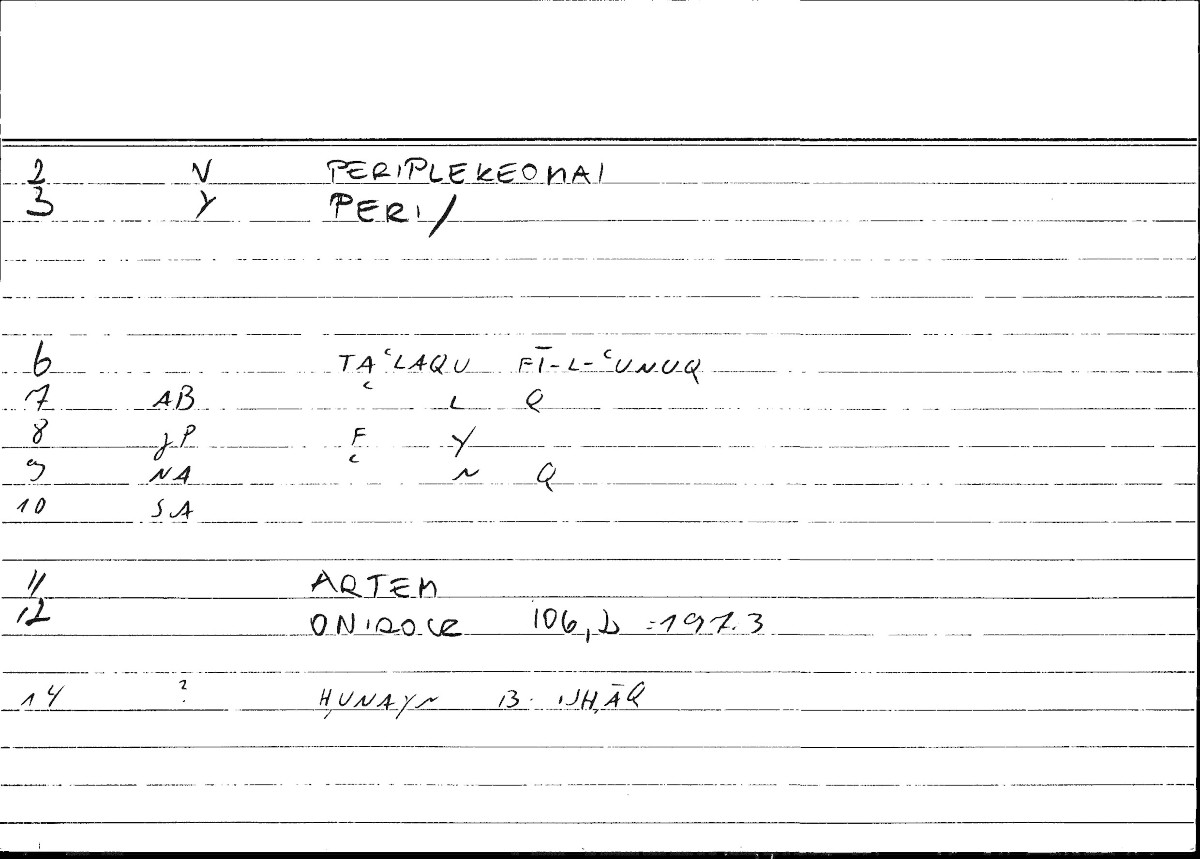 2 V PERIPLEKEOMAI
3 Y PERI/
6 TAʿLAQU FĪ-L-ʿUNUQ
7 AB ʿ L Q
8 JP F Y
9 NA ʿ N Q
10 SA
11 ARTEM
12 ONIROCR 106, =197.3
14 ? ḤUNAYN B. ISḤĀQ